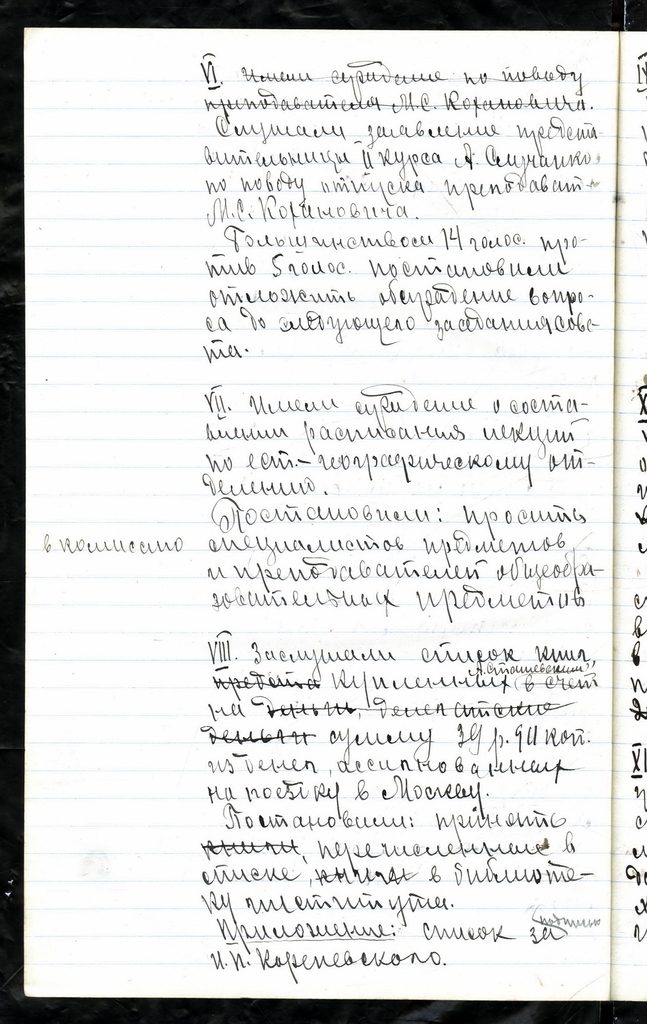 VI. Имели суждение по поводу
преподавателя М.С. Корановича.
Слушали заявление предста-
вительницы II курса А. Случанко
по поводу отпуска преподават.
М.С. Корановича.
Большинством 14 голос. про-
тив 5 голос. постановили
отложить обсуждение вопро-
са до следующего заседания сове-
та.
VII. Имели суждение о соста-
влении расписания лекций
по ест.-географическому от-
делению.
Постановили: просить
в комиссию специалистов предметов
и преподавателей общеобра-
зовательных предметов
VIII. Заслушали список книг,
А. Сташевским,
купленных в счет
на деньги, делегатские
деньги сумму 39 р. 90 коп.
из денег, ассигнованных
на поездку в Москву.
Постановили: принять
книги, перечисленные в
списке, книги в библиоте-
ку института.
подписью
Приложение: список за
И.П. Корепевского.